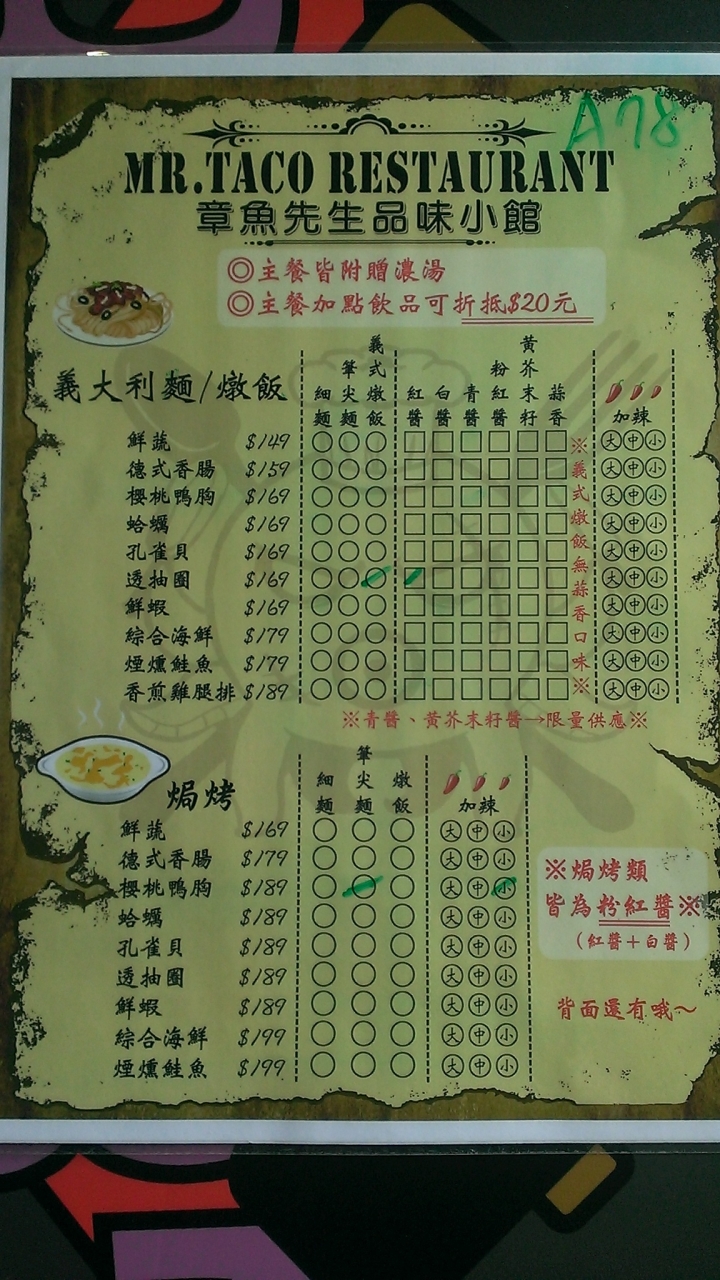 A78
MR.TACO RESTAURANT
章魚先生品味小館
◎主餐皆附贈濃湯
◎主餐加點飲品可折抵$20元
義大利麵/燉飯 細麵 筆尖麵 義式燉飯 紅醬 白醬 青醬 粉紅醬 黃芥末籽 蒜香 加辣
鮮蔬 $149 大 中 小
德式香腸 $159 大 中 小
櫻桃鴨胸 $169 大 中 小
蛤蠣 $169 大 中 小
孔雀貝 $169 大 中 小
透抽圈 $169 大 中 小
鮮蝦 $169 大 中 小
綜合海鮮 $179 大 中 小
煙燻鮭魚 $179 大 中 小
香煎雞腿排 $189 大 中 小
※義式燉飯無蒜香口味※
※青醬、黃芥末籽醬→限量供應※
焗烤 細麵 筆尖麵 燉飯 加辣
鮮蔬 $169 大 中 小
德式香腸 $179 大 中 小
櫻桃鴨胸 $189 大 中 小
蛤蠣 $189 大 中 小
孔雀貝 $189 大 中 小
透抽圈 $189 大 中 小
鮮蝦 $189 大 中 小
綜合海鮮 $199 大 中 小
煙燻鮭魚 $199 大 中 小
※焗烤類
皆為粉紅醬※
(紅醬+白醬)
背面還有哦~